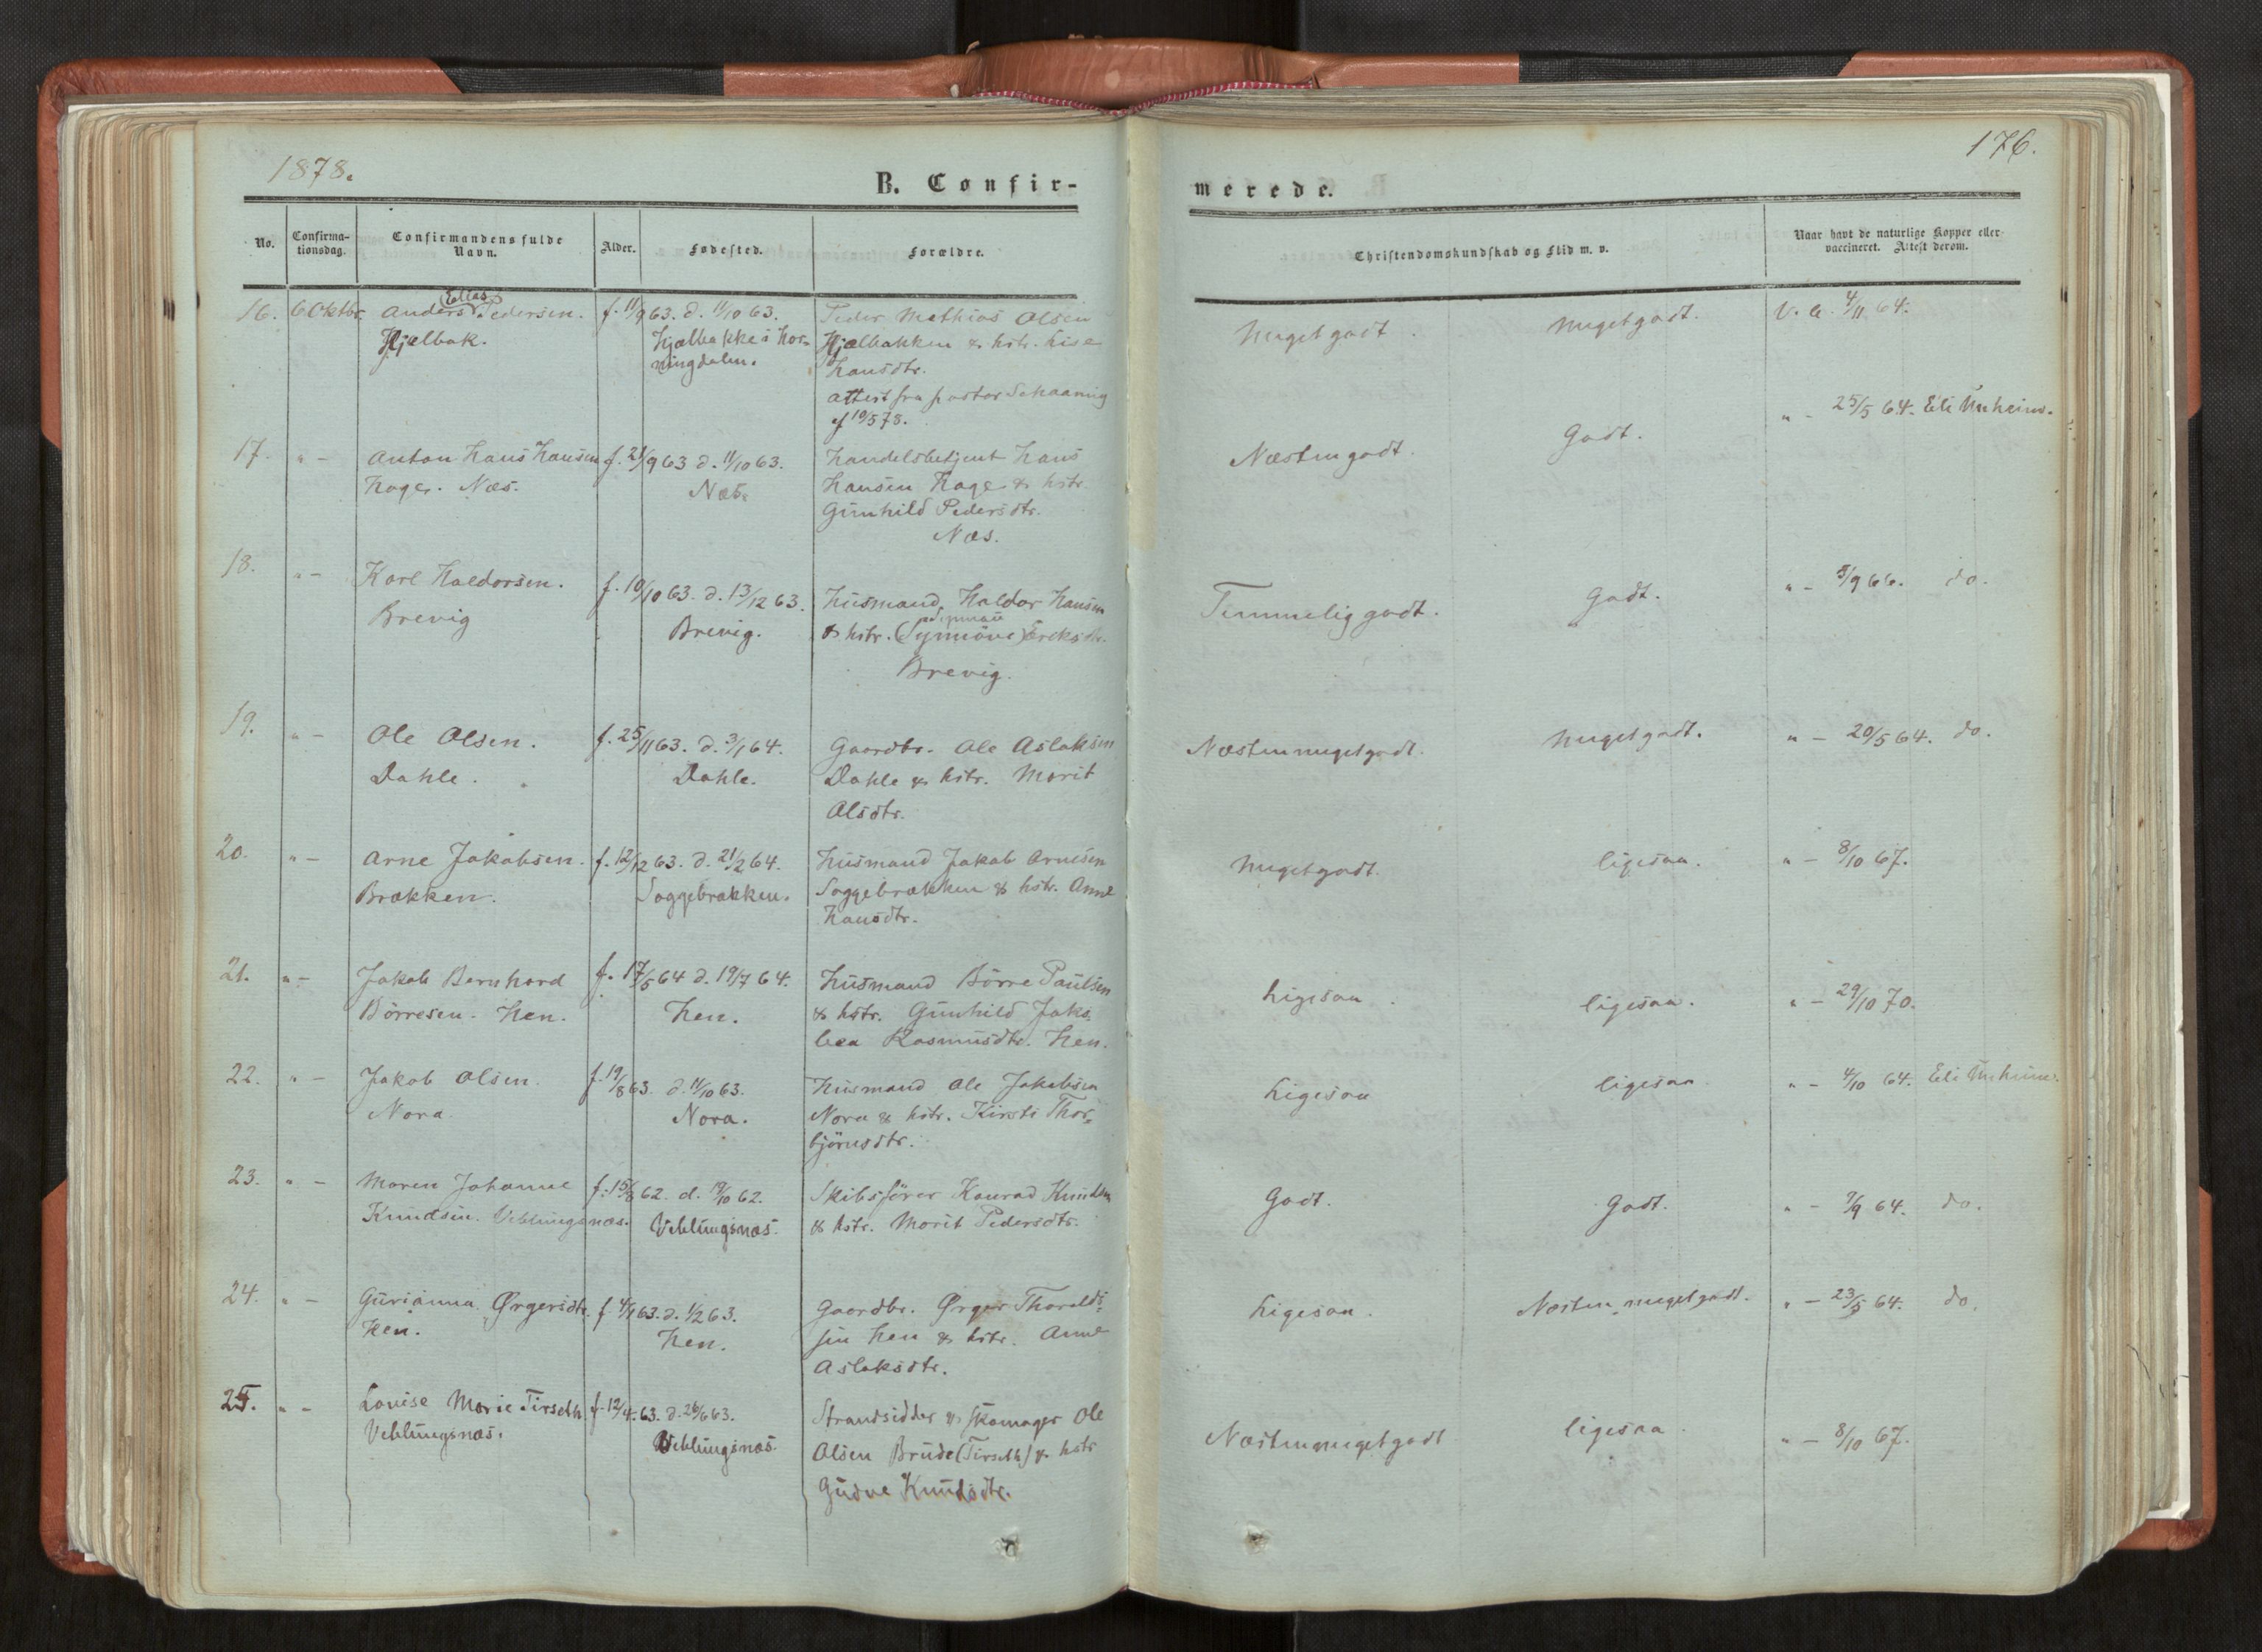 1878.
176.
B. Confir-
merede.
No.
Confirma-
tionsdag.
Confirmandens fulde
Navn.
Alder.
Fødested.
Forældre.
Christendomskundskab og Flid m. v.
Naar havt de naturlige Kopper eller
vaccineret. Attest derom.
16. 6 Oktbr. Anders (Elias) Pedersen. f. 11/9 63. d. 11/10 63. Peder Mathias Olsen Meget godt. Meget godt. V. a. 4/11 64.
Hjelbak. Hjælbakke i Hor- Hjælbakken & hstr. Lise
ningdalen. Hansdtr.
Attest fra pastor Schaaning
af 10/5 78.
17. " – Anton Hans Hansen f. 21/9 63 d. 11/10 63. Handelsbetjent Hans Næsten godt. Godt. " – 25/5 64. Eli Unheim.
Hage. Næs. Næs. Hansen Hage & hstr.
Gunhild Pedersdtr.
Næs.
18. " – Karl Haldorsen. f. 10/10 63. d. 13/12 63. Husmand, Haldor Hansen Temmelig godt. Godt. " – 3/9 66. do.
Brevig Brevig. & hstr. (Synnöve) Ereksdtr.
Brevig.
19. " – Ole Olsen. f. 25/11 63. d. 3/1 64. Gaardbr. Ole Aslaksen Næsten meget godt. Meget godt. " – 20/5 64. do.
Dahle. Dahle. Dahle & hstr. Marit
Olsdtr.
20. " – Arne Jakobsen. f. 12/12 63. d. 21/2 64. Husmand Jakob Arnesen Meget godt. ligesaa. " – 8/10 67.
Brækken. Soggebrækken. Soggebrækken & hstr. Anne
Hansdtr.
21. " – Jakob Bernhard f. 17/5 64 d. 19/7 64. Husmand Börre Paulsen Ligesaa. ligesaa. " – 29/10 70.
Börresen. Hen. Hen. & hstr. Gunhild Jako-
bea Rasmusdtr. Hen.
22. " – Jakob Olsen. f. 19/8 63. d. 11/10 63. Husmand Ole Jakobsen Ligesaa ligesaa " – 4/10 64. Eli Unheim.
Nora Nora. Nora & hstr. Kirsti Thor-
björnsdtr.
23. " – Maren Johanne f. 15/8 62. d. 19/10 62. Skibsfører Konrad Knudsen Godt. Godt. " – 7/9 64. do.
Knudsen. Veblungsnæs. Veblungsnæs. & hstr. Marit Pedersdtr.
24. " – Gurianna Ørgersdtr. f. 4/1 63. d. 1/2 63. Gaardbr. Ørger Thoralds- Ligesaa. Næsten meget godt. " – 23/5 64. do.
Hen. Hen. sen Hen & hstr. Anne
Aslaksdtr.
25. " – Louise Marie Tirseth f. 12/4 63. d. 26/6 63. Strandsidder & skomager Ole Næsten meget godt ligesaa. " – 8/10 67.
Veblungsnæs. Veblungsnæs. Olsen Brude (Tirseth) & hstr
Gudve Knudsdtr.